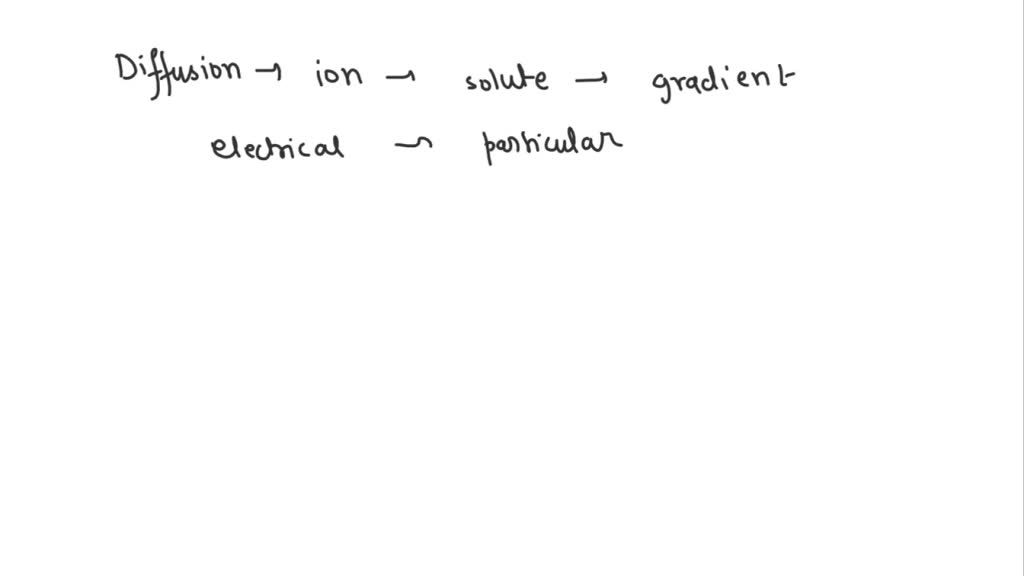 Diffusion → ion → solute → gradient
electrical → particular